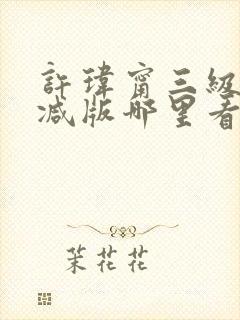 許瑋甯三級
减版哪里看
茉花花